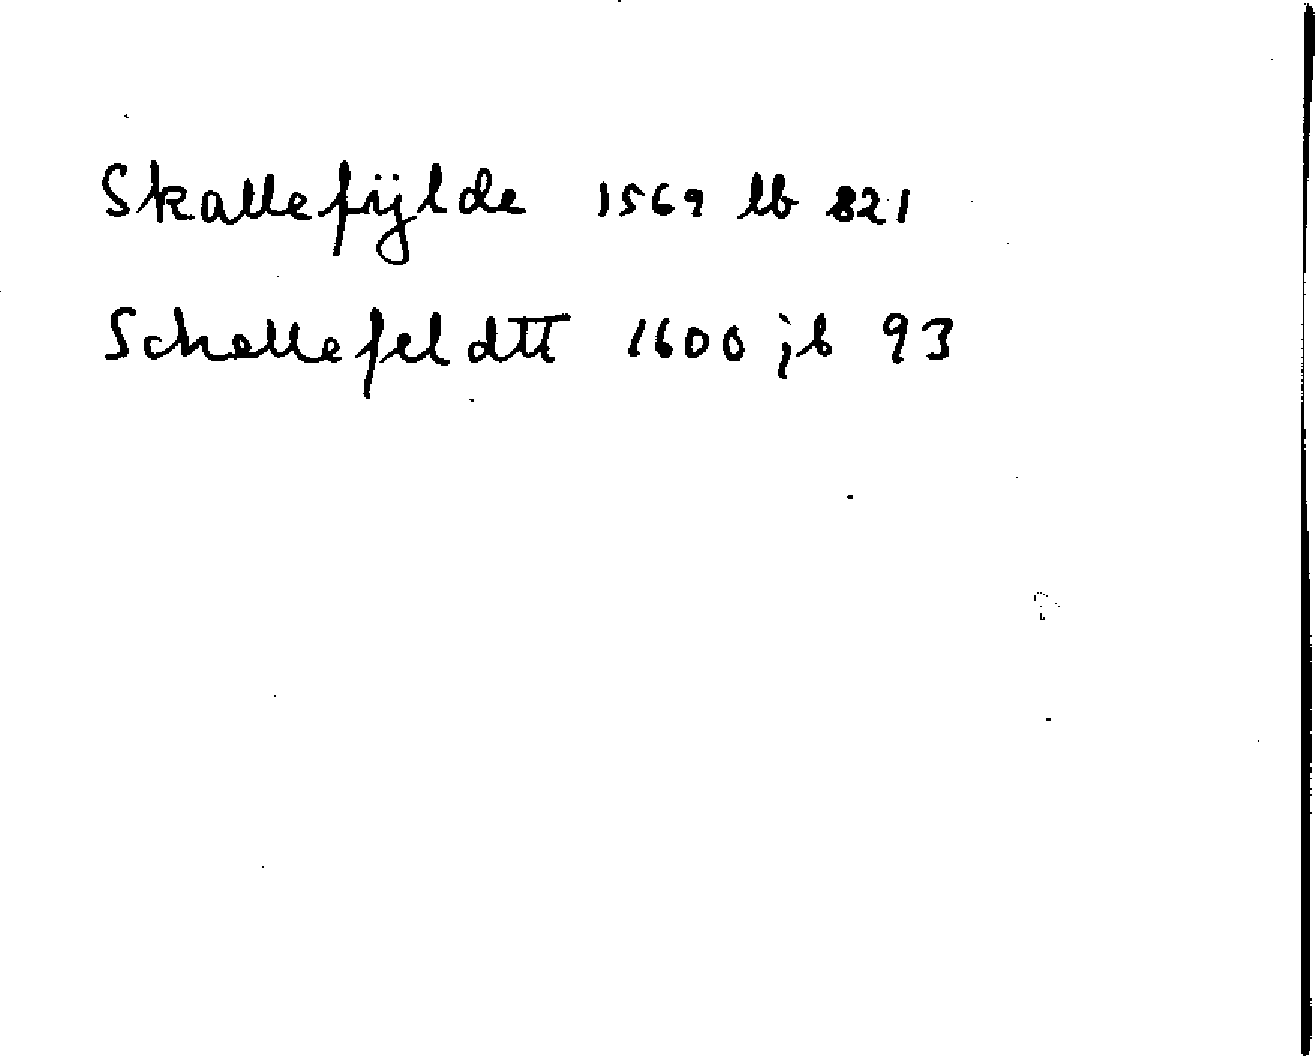 Skallefÿlde 1569 lb 821
Schallefeldtt 1600 jb 93